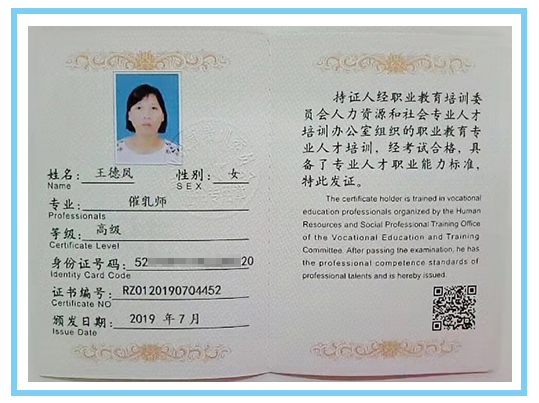 姓名: 王德凤 性别: 女
Name SEX
专业: 催乳师
Professionals
等级: 高级
Certificate Level
身份证号码: 52 20
Identity Card Code
证书编号: RZ0120190704452
Certificate NO
颁发日期: 2019 年 7 月
Issue Date
持证人经职业教育培训委
员会人力资源和社会专业人才
培训办公室组织的职业教育专
业人才培训，经考试合格，具
备了专业人才职业能力标准，
特此发证。
The certificate holder is trained in vocational
education professionals organized by the Human
Resources and Social Professional Training Office
of the Vocational Education and Training
Committee. After passing the examination, he has
the professional competence standards of
professional talents and is hereby issued.